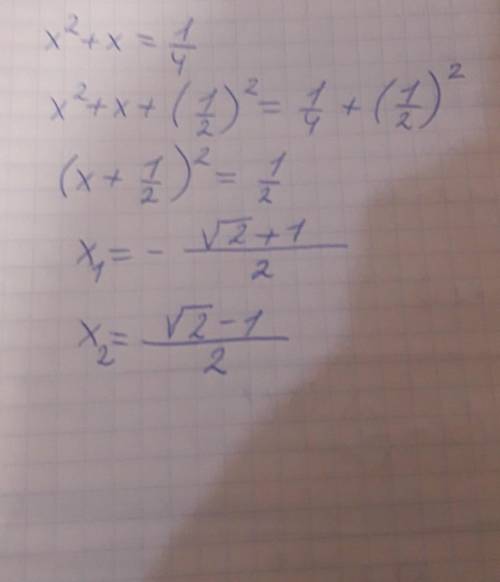 x² + x = 1/4
x² + x + (1/2)² = 1/4 + (1/2)²
(x + 1/2)² = 1/2
x₁ = - (√2 + 1)/2
x₂ = (√2 - 1)/2